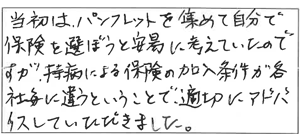 当初は、パンフレットを集めて自分で
保険を選ぼうと安易に考えていたので
すが、持病による保険の加入条件が各
社毎に違うということで、適切にアドバ
イスしていただきました。